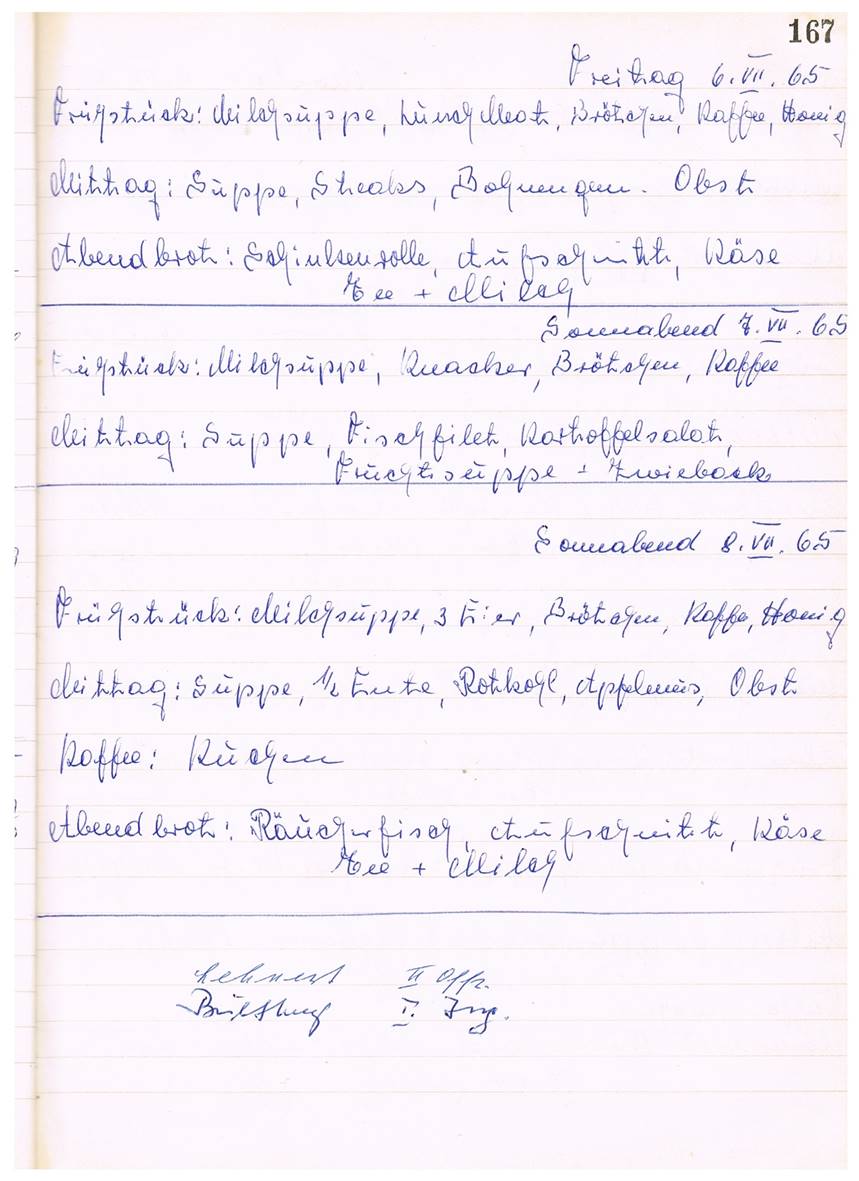 167
Freitag 6. VII. 65
Frühstück: Milchsuppe, Lunch Meat, Brötchen, Kaffee, Honig
Mittag: Suppe, Steaks, Bohnengem. Obst
Abendbrot: Schinkenrolle, Aufschnitt, Käse
Tee + Milch
Sonnabend 7. VII. 65
Frühstück: Milchsuppe, Knacker, Brötchen, Kaffee
Mittag: Suppe, Fischfilet, Kartoffelsalat,
Fruchtsuppe + Zwieback
Sonnabend 8. VII. 65
Frühstück: Milchsuppe, 3 Eier, Brötchen, Kaffee, Honig
Mittag: Suppe, 1/2 Ente, Rotkohl, Apfelmus, Obst
Kaffee: Kuchen
Abendbrot: Räucherfisch, Aufschnitt, Käse
Tee + Milch
Lehnert II Offz.
I. Ing.